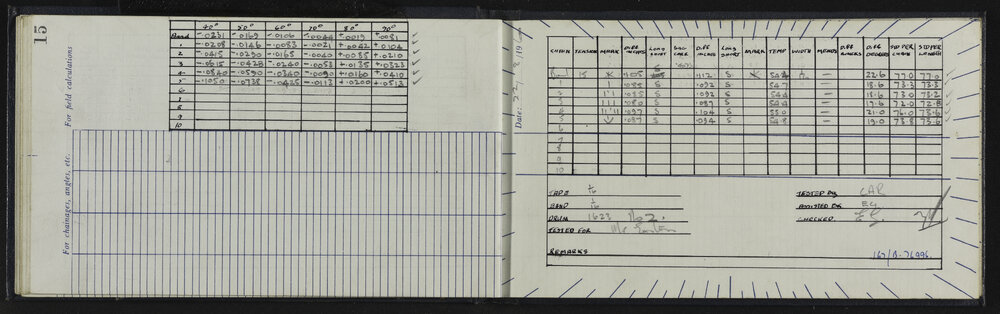 15
For field calculations
40° 50° 60° 70° 80° 90°
Band -.0231 -.0169 -.0106 -.0044 +.0019 +.0081
1 -.0208 -.0146 -.0083 -.0021 +.0042 +.0104
2 -.0415 -.0290 -.0165 -.0040 +.0085 +.0210
3 -.0615 -.0428 -.0240 -.0053 +.0135 +.0323
4 -.0840 -.0590 -.0340 -.0090 +.0160 +.0410
5 -.1050 -.0738 -.0425 -.0113 +.0200 +.0513
6
7
8
9
10
For chainages, angles, etc.
Date: 22/ 2/19
CHAIN TENSION MARK DIFF INCHES LONG SHORT DIFF INCHES LONG SHORT MARK TEMP WIDTH MENDS DIFF DEGREES STD PER CHAIN STD PER LENGTH
Band 15 .105 S .112 S 54.2 — 22.6 77.0 77.0
1 .085 S .092 S 54.7 — 18.6 73.3 73.3
2 .085 S .092 S 54.4 — 18.6 73.0 73.2
3 .080 S .087 S 54.4 — 17.6 72.0 72.8
4 .097 S .104 S 55.0 — 21.0 76.0 73.6
5 .087 S .094 S 54.8 — 19.0 73.8 73.6
6
7
8
9
10
TAPE 1/16
BAND 1/16
DRUM 1623 No 2.
TESTED FOR Mr
REMARKS
TESTED BY CAR
ASSISTED BY
CHECKED